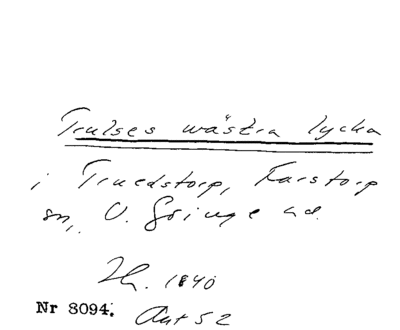 Trulses wästra lycka
i Truedstorp, Farstorp
sn, V. Göinge hd.
Th. 1840
Nr 8094. Akt 52